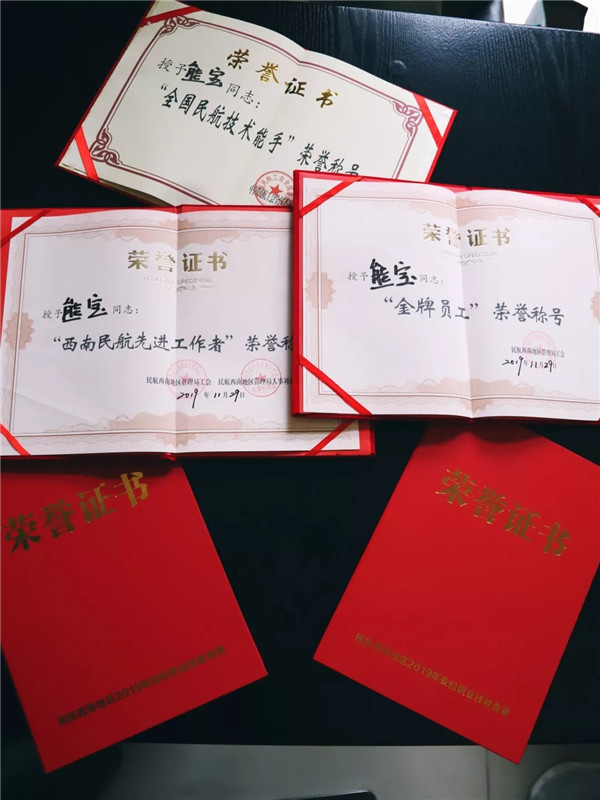 荣誉证书
授予熊宝同志：
“全国民航技术能手”荣誉称号
荣誉证书
授予熊宝同志：
“西南民航先进工作者”荣誉称
民航西南地区管理局工会 民航西南地区管理局人事科
2019年11月29日
荣誉证书
授予熊宝同志：
“金牌员工”荣誉称号
民航西南地区管理局工会
2019年11月29日
荣誉证书
民航西南地区2019年
荣誉证书
民航西南地区2019年安检职业技能竞赛